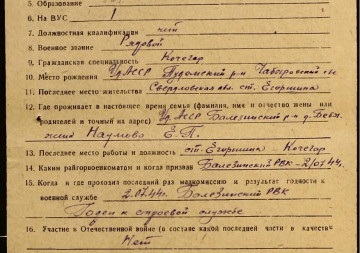 5. Образование
6. На ВУС 1
7. Должностная квалификация нет
8. Военное звание Рядовой
9. Гражданская специальность Кочегар
10. Место рождения УдАССР Пудемский р-н
11. Последнее место жительства Свердловская обл. ст. Егоршина
12. Где проживает в настоящее время семья (фамилия, имя и отчество жены или
родителей и точный их адрес) УдАССР Балезинский р-н д.
Наумова Е.П.
13. Последнее место работы и должность ст. Егоршина - Кочегар
14. Каким райгорвоенкоматом и когда призван Балезинский РВК - 2/07.44г.
15. Когда и где проходил последний раз медкомиссию и результат годности к
военной службе 2.07.44г. Балезинский РВК
Годен к строевой службе
16. Участие в Отечественной войне (в составе какой последней части в качеств
Нет